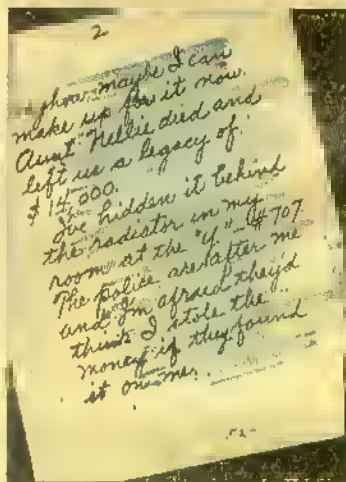 2
you. maybe I can
make up for it now.
Aunt Nellie died and
left us a legacy of
$14,000.
I've hidden it behind
the radiator in my
room at the "Y." - #707.
The police are after me
and I'm afraid they'd
think I stole the
money if they found
it on me.